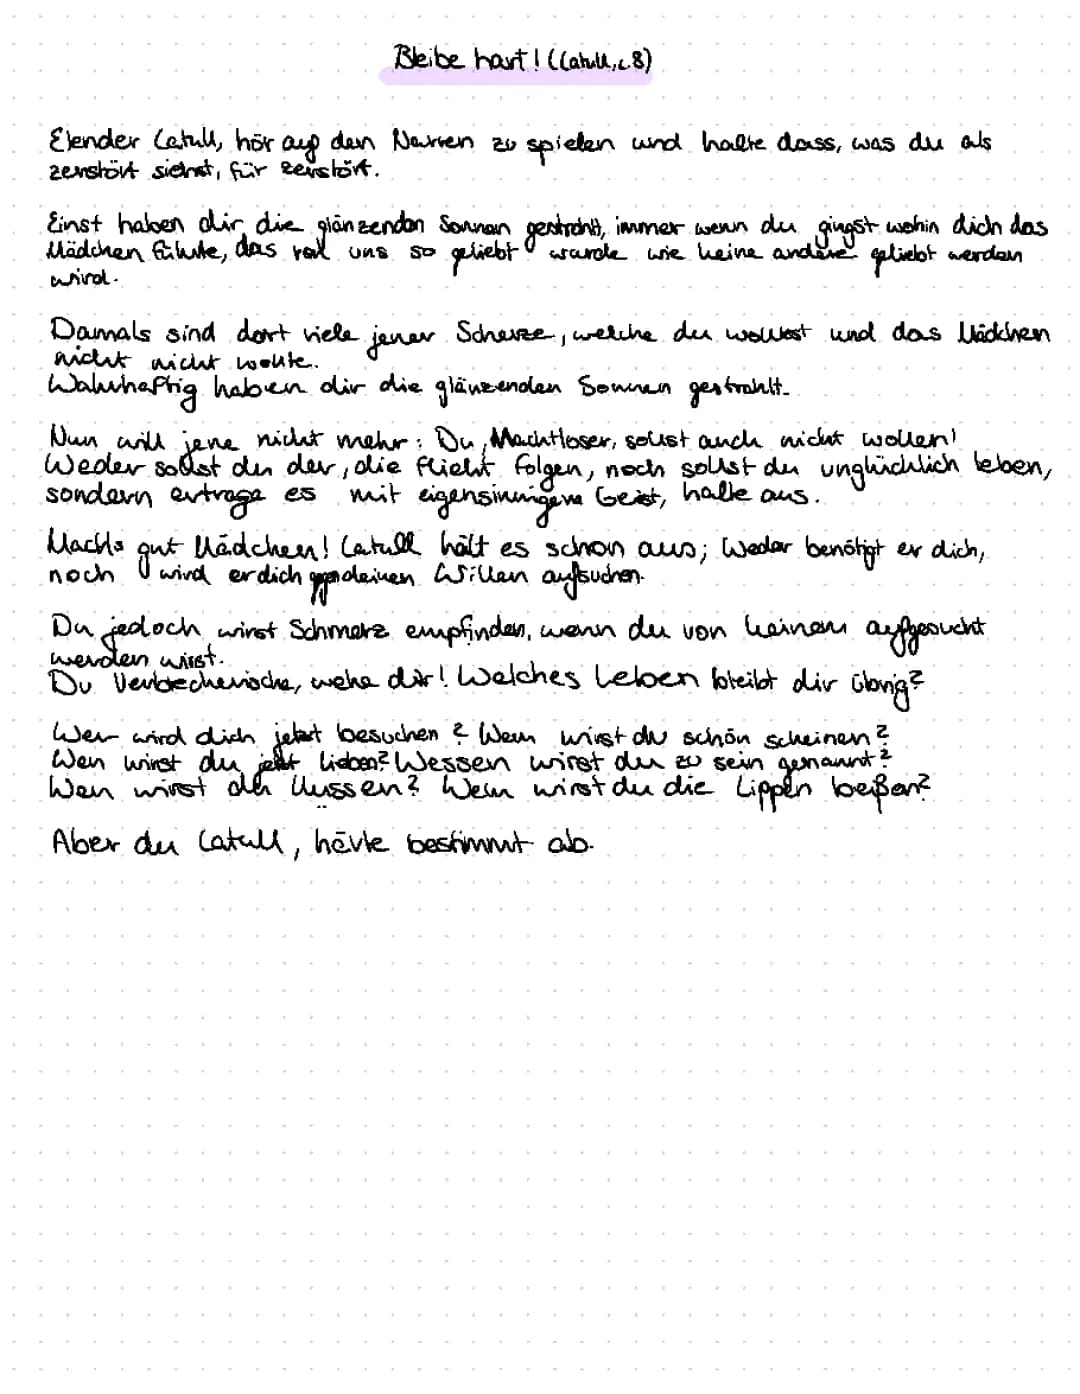 Bleibe hart! (Catull, c.8)
Elender Catull, hör auf den Narren zu spielen und halte dass, was du als
zerstört siehst, für zerstört.
Einst haben dir die glänzenden Sonnen gestrahlt, immer wenn du gingst wohin dich das
Mädchen führte, das von uns so geliebt wurde wie keine andere geliebt werden
wird.
Damals sind dort viele jener Scherze, welche du wolltest und das Mädchen
nicht nicht wollte.
Wahrhaftig haben dir die glänzenden Sonnen gestrahlt.
Nun will jene nicht mehr: Du, Machtloser, sollst auch nicht wollen!
Weder sollst du der, die flieht folgen, noch sollst du unglücklich leben,
sondern ertrage es mit eigensinnigem Geist, halte aus.
Machs gut Mädchen! Catull hält es schon aus; Weder benötigt er dich,
noch wird er dich gegen deinen Willen aufsuchen.
Du jedoch wirst Schmerz empfinden, wenn du von keinem aufgesucht
werden wirst.
Du Verbrecherische, wehe dir! Welches Leben bleibt dir übrig?
Wer wird dich jetzt besuchen? Wem wirst du schön scheinen?
Wen wirst du jetzt lieben? Wessen wirst du zu sein genannt?
Wen wirst du küssen? Wem wirst du die Lippen beißen?
Aber du Catull, härte bestimmt ab.